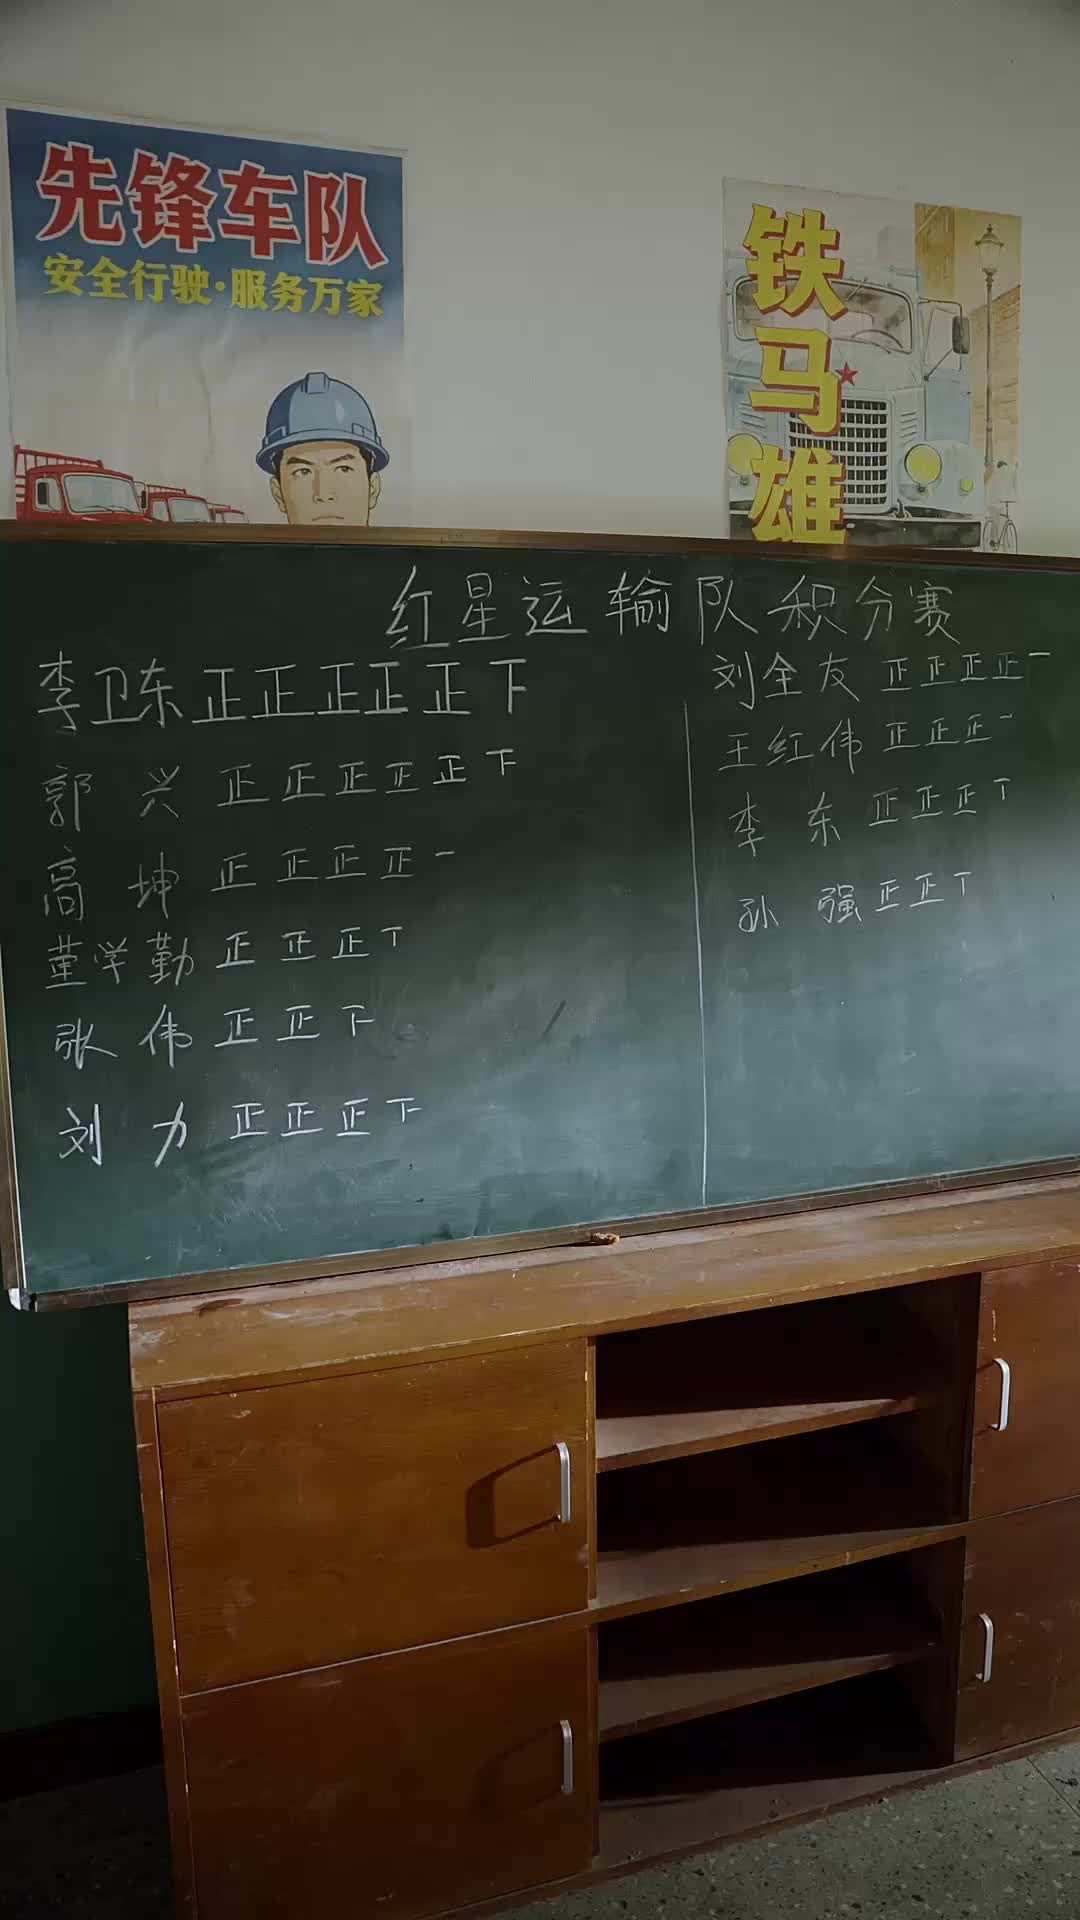 先锋车队
安全行驶·服务万家
铁马雄
红星运输队积分赛
李卫东 正正正正正下
郭兴 正正正正正下
高坤 正正正正一
董学勤 正正正丅
张伟 正正下
刘力 正正正下
刘全友 正正正正一
王红伟 正正正一
李东 正正正丅
孙强 正正丅